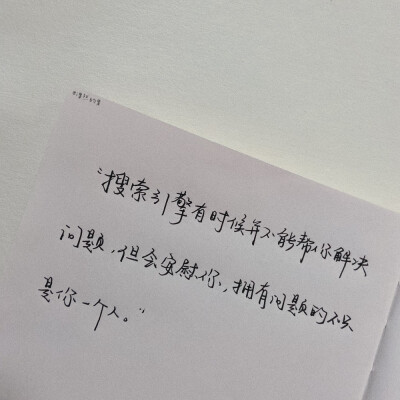 “搜索引擎有时候并不能帮你解决
问题，但会安慰你，拥有问题的不只
是你一个人。”